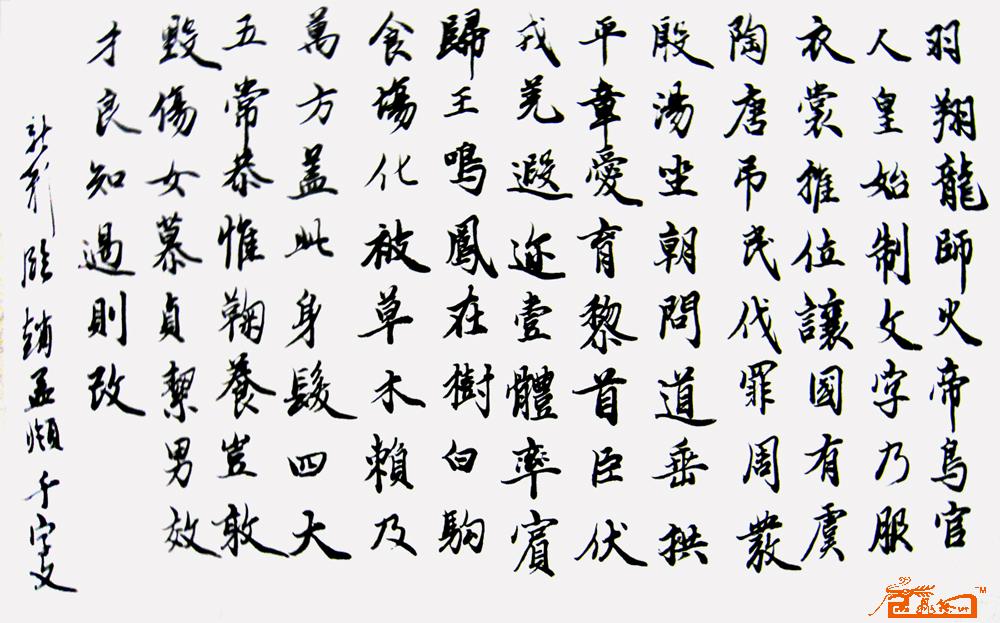 羽翔龍師火帝鳥官
人皇始制文字乃服
衣裳推位讓國有虞
陶唐吊民伐罪周發
殷湯坐朝問道垂拱
平章愛育黎首臣伏
戎羌遐迩壹體率賓
歸王鳴鳳在樹白駒
食場化被草木賴及
萬方蓋此身髮四大
五常恭惟鞠養豈敢
毀傷女慕貞絜男效
才良知過則改
臨趙孟頫千字文